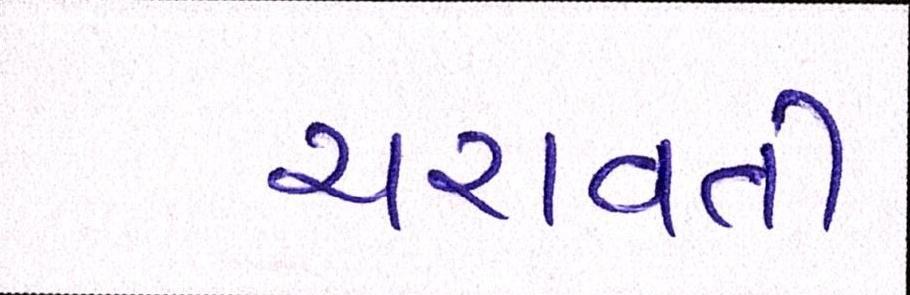 ચરાવતી